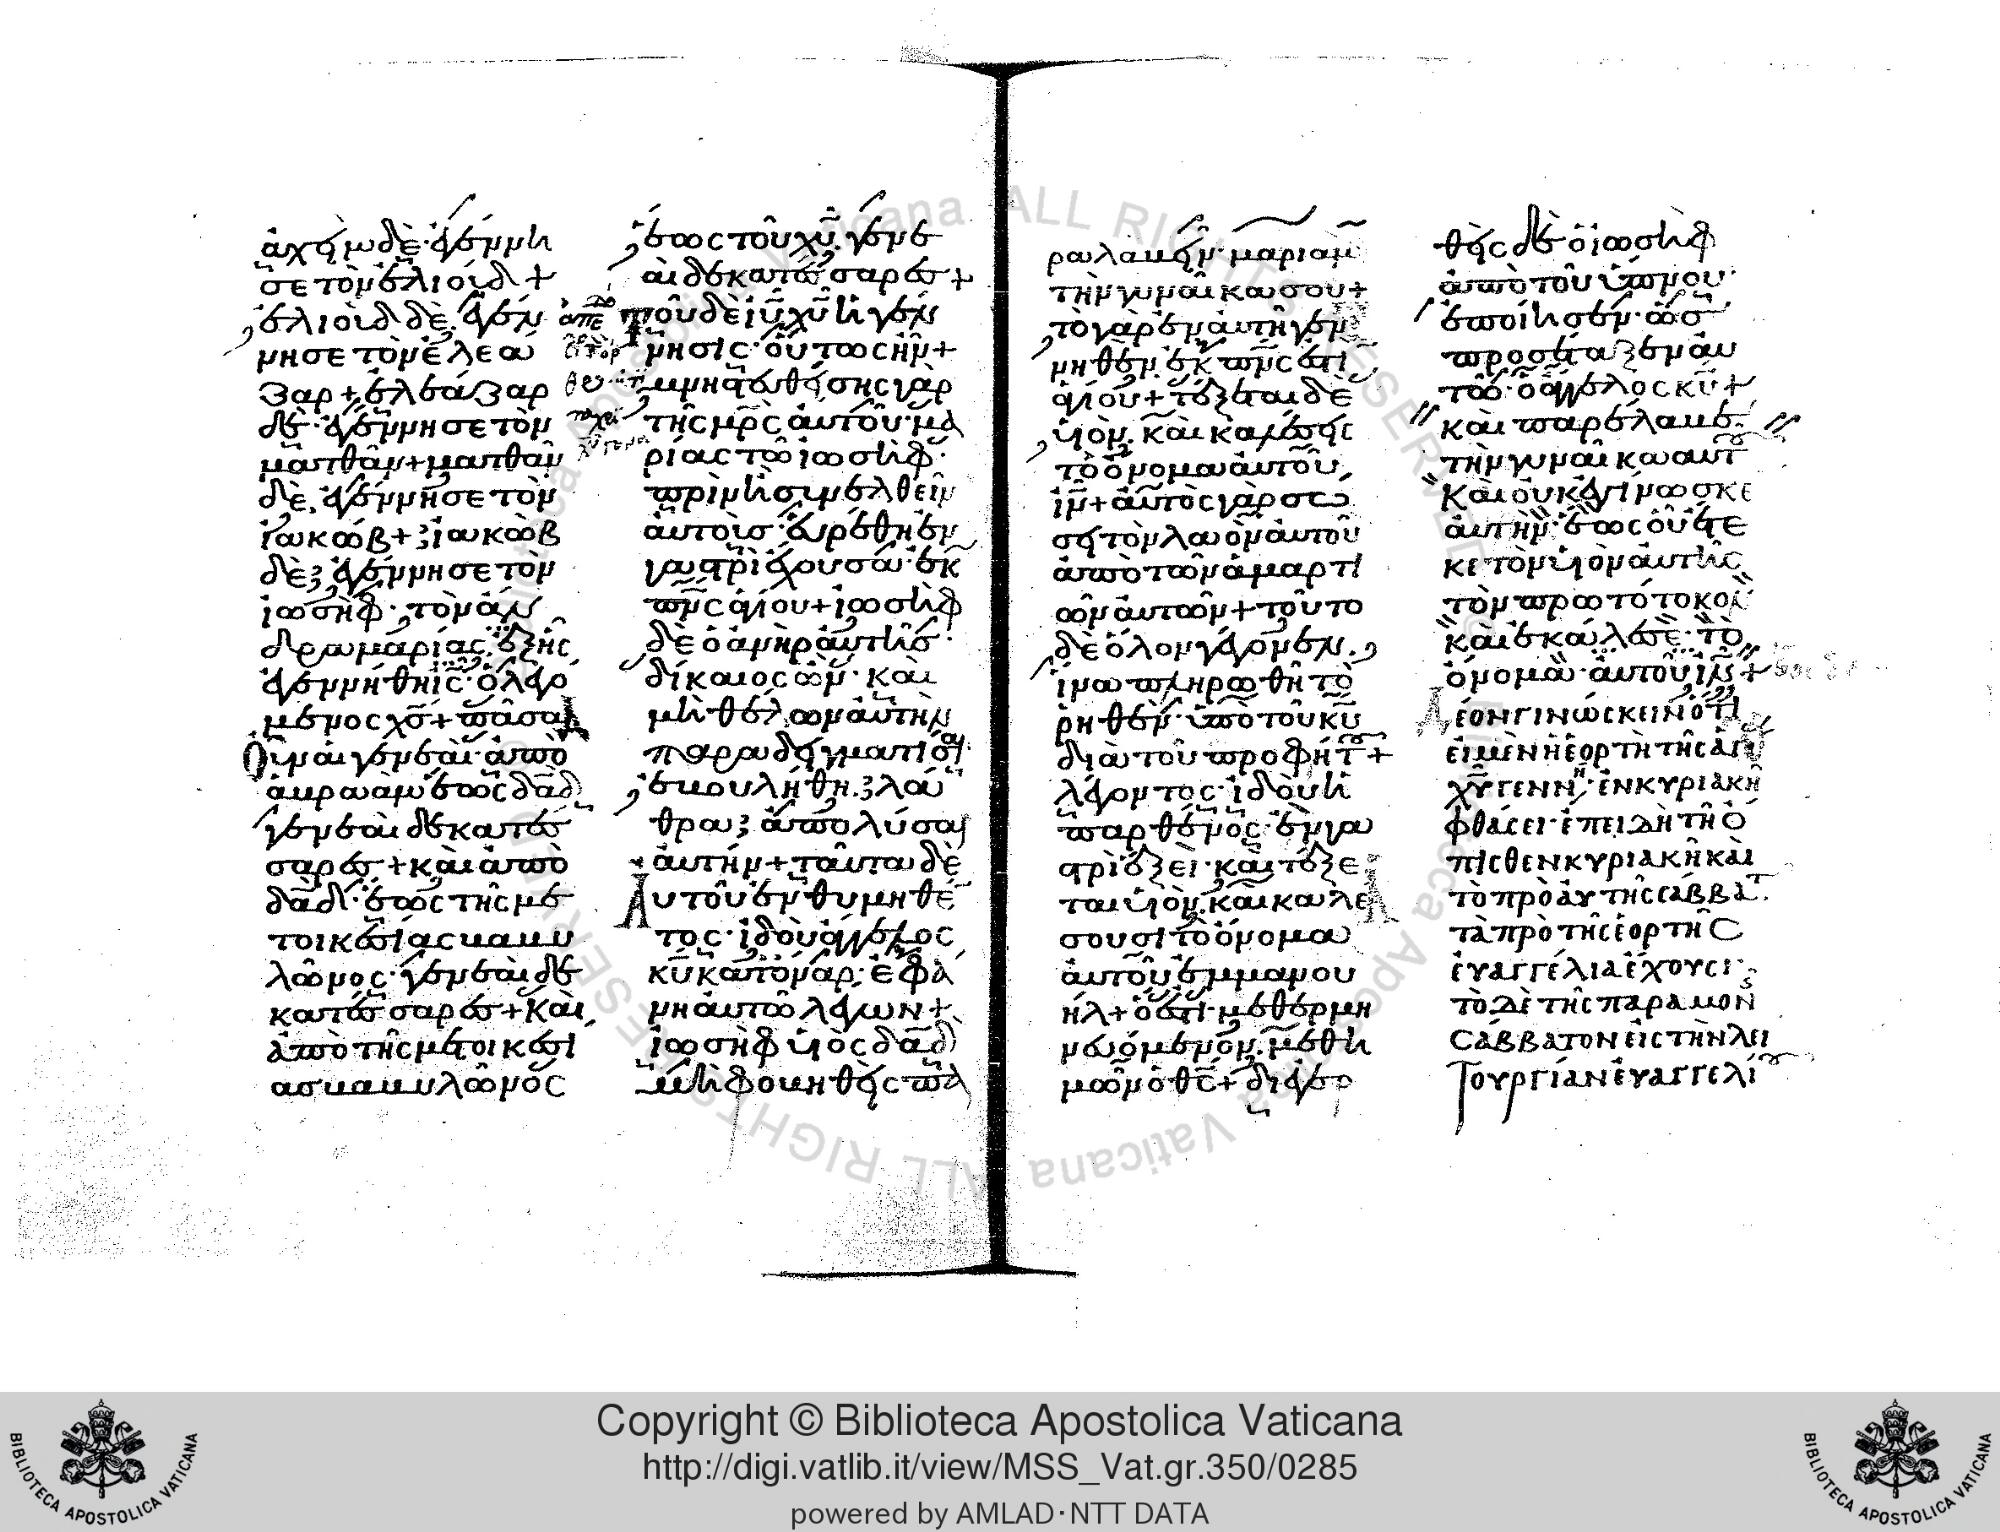 ἀχεὶμ δὲ· ἐγέννη
σε τὸν ἐλιούδ +
ἐλιοὺδ δὲ· ἐγέν
νησε τὸν ἐλεά
ζαρ + ἐλεάζαρ
δὲ· ἐγέννησε τὸν
ματθάν + ματθὰν
δὲ· ἐγέννησε τὸν
ἰακώβ + ἰακὼβ
δὲ· ἐγέννησε τὸν
ἰωσὴφ· τὸν ἄν
δρα μαρίας· ἐξ ἧς
ἐγεννήθη ἰς· ὁ λεγό
μενος χς + πᾶσαι
Οὖν αἱ γενεαὶ· ἀπὸ
ἀβραὰμ ἕως δαδ
γενεαὶ δεκατέσ
σαρες + καὶ ἀπὸ
δαδ· ἕως τῆς με
τοικεσίας βαβυ
λῶνος· γενεαὶ δε
κατέσσαρες + καὶ
ἀπὸ τῆς μετοικεσί
ας βαβυλῶνος
ἕως τοῦ χυ· γενε
αὶ δεκατέσσαρες +
τοῦ δὲ ιυ χυ ἡ γέν
νησις· οὕτως ἦν +
μνηστευθείσης γὰρ
τῆς μρς αὐτοῦ· μα
ρίας τῷ ἰωσήφ·
πρὶν ἢ συνελθεῖν
αὐτοὺς· εὑρέθη ἐν
γαστρὶ ἔχουσα· ἐκ
πνς ἁγίου + ἰωσὴφ
δὲ ὁ ἀνὴρ αὐτῆς·
δίκαιος ὢν· καὶ
μὴ θέλων αὐτὴν
παραδειγματίσαι·
ἐβουλήθη λά
θρα ἀπολύσαι
αὐτήν + ταῦτα δὲ
Αυτοῦ ἐνθυμηθέ
τος· ἰδοὺ ἄγγελος
κυ κατ' ὄναρ· ἐφά
νη αὐτῷ λέγων +
ἰωσὴφ υἱὸς δαδ
μὴ φοβηθῇς πα
ραλαβεῖν· μαριὰμ
τὴν γυναῖκα σου +
τὸ γὰρ ἐν αὐτῇ γεν
νηθὲν· ἐκ πνς ἐστὶ
ἁγίου + τέξεται δὲ
υἱὸν· καὶ καλέσεις
τὸ ὄνομα αὐτοῦ
ιν + αὐτὸς γὰρ σώ
σει τὸν λαὸν αὐτοῦ
ἀπὸ τῶν ἁμαρτι
ῶν αὐτῶν + τοῦτο
δὲ ὅλον γέγονεν·
ἵνα πληρωθῇ τὸ
ῥηθὲν· ὑπὸ τοῦ κυ
διὰ τοῦ προφήτ +
λέγοντος· ἰδοὺ ἡ
παρθένος· ἐν γα
στρὶ ἕξει· καὶ τέξε
ται υἱὸν· καὶ καλέ
σουσι τὸ ὄνομα
αὐτοῦ ἐμμανου
ήλ + ὅ ἐστι· μεθερμη
νευόμενον· μεθ' ἡ
μῶν ὁ θς + διεγερ
θεὶς δὲ ὁ ἰωσὴφ
ἀπὸ τοῦ ὕπνου·
ἐποίησεν· ὡς
προσέταξεν αὐ
τῷ· ὁ ἄγγελος κυ +
καὶ παρέλαβε·
τὴν γυναῖκα αὐτ
καὶ οὐκ ἐγίνωσκε
αὐτὴν· ἕως οὗ ἔτε
κε τὸν υἱὸν αὐτῆς
τὸν πρωτότοκον
καὶ ἐκάλεσε· τὸ
ὄνομα· αὐτοῦ ιν +
Δέον γινώσκειν ὅτι
εἰ μὲν ἡ ἑορτὴ τῆς ἁγι
χυ γενν· ἐν κυριακῇ
φθάσει· ἐπειδὴ τῇ ὄ
πισθεν κυριακῇ καὶ
τὸ πρὸ αὐτῆς σάββατ
τὰ πρὸ τῆς ἑορτῆς
εὐαγγέλια ἔχουσι·
τὸ δὲ τῆς παραμον
σάββατον εἰς τὴν λει
τουργίαν εὐαγγελί